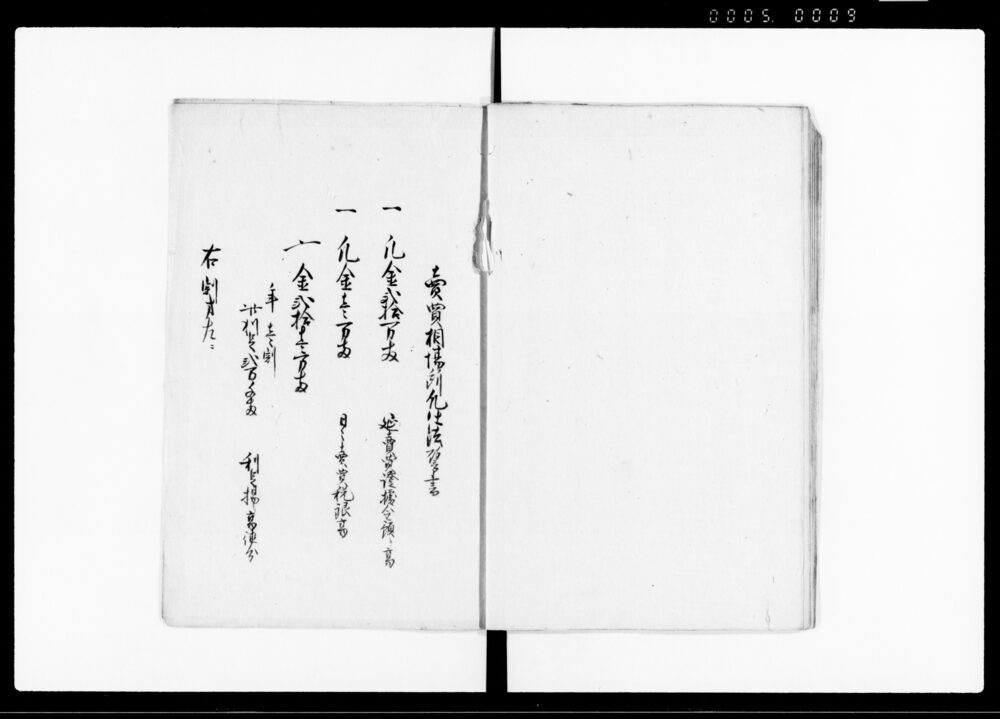 0005. 0009
賣買相場所凡仕法
一 凡金弐拾万両 延賣買證據金預り高
一 凡金壱万両 日々賣買税銀高
〆 金弐拾壱万両
年壱割
此利足弐万千両 利足揚高
右割